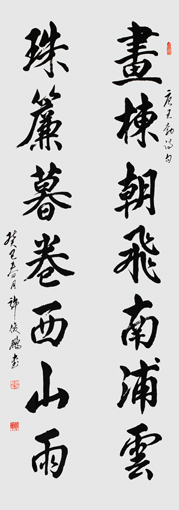 畫棟朝飛南浦雲
唐王勃詩句
珠簾暮卷西山雨
癸巳春月許俊鵬書